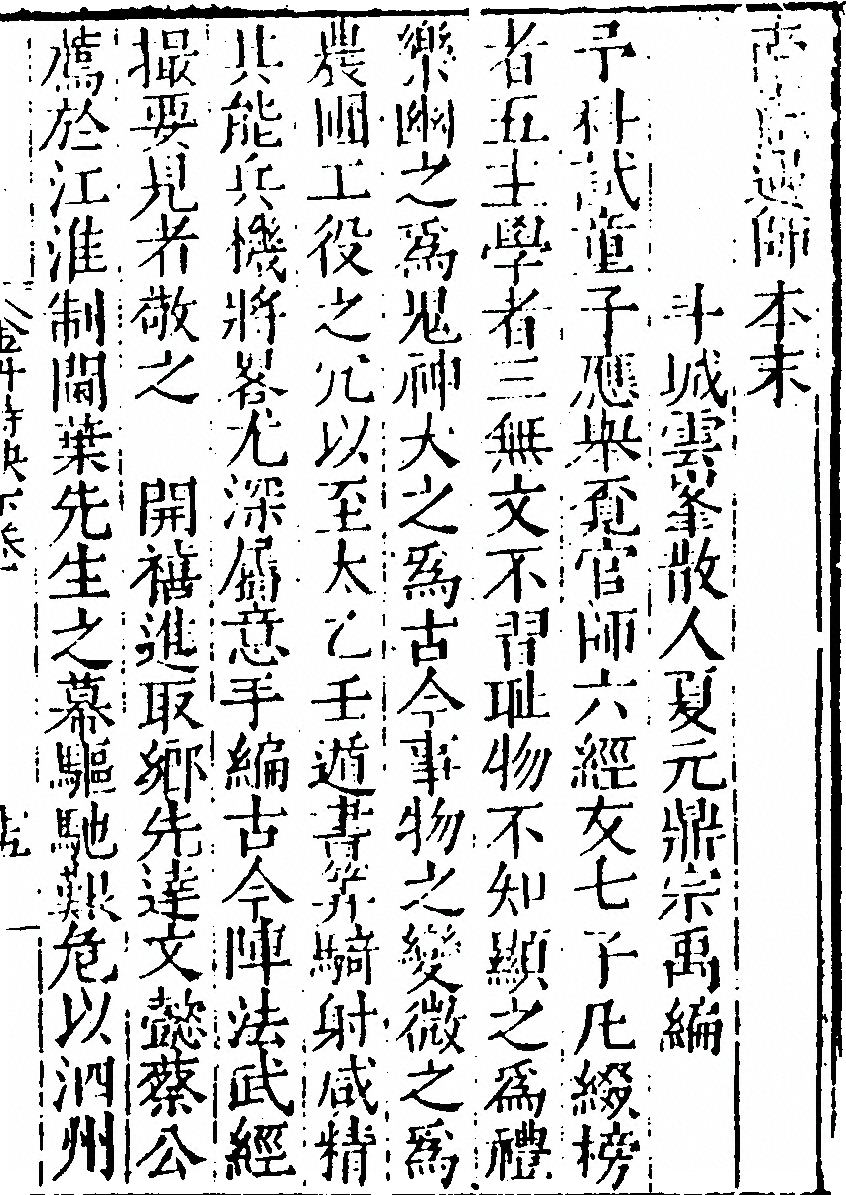 南嶽遇師本末
斗城雲峯散人夏元鼎宗禹編
予科試童子應舉覓官師六經友七子凡綴榜
者五主學者三無文不習耻物不知顯之爲禮
樂幽之爲鬼神大之爲古今事物之變微之爲
農圃工役之冗以至太乙壬遁書筭騎射咸精
其能兵機將畧尤深屬意手編古今陣法武經
撮要見者敬之　開禧進取鄉先達文懿蔡公
薦於江淮制閫葉先生之幕驅馳艱危以泗州